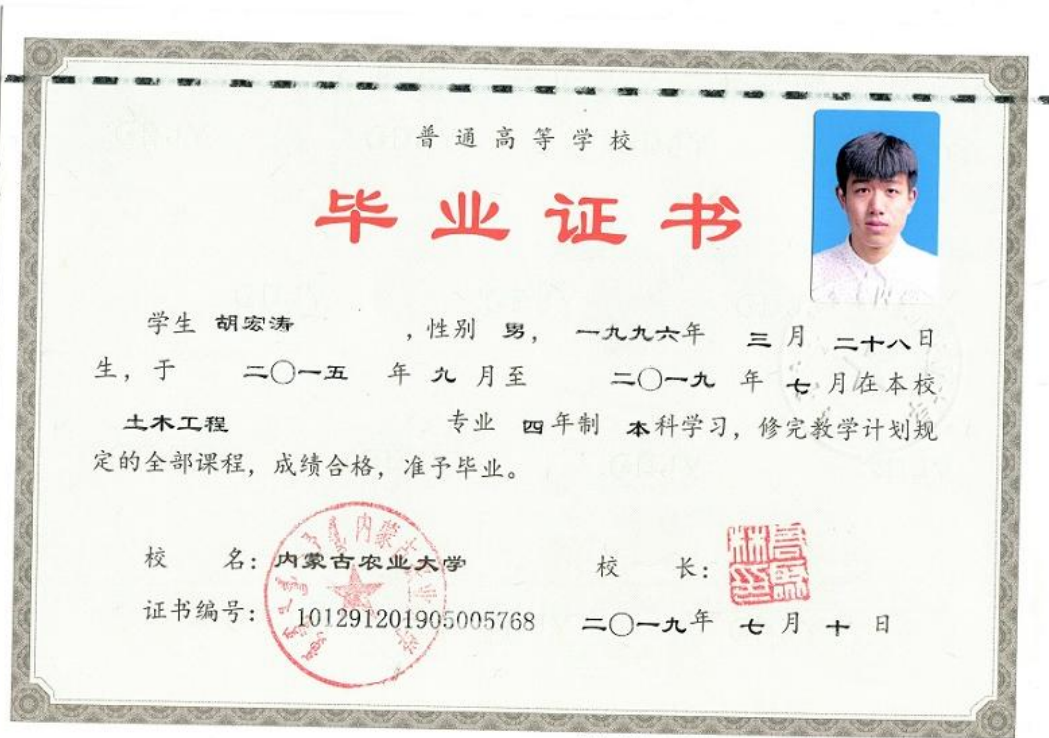 普通高等学校
毕业证书
学生 胡宏涛 ，性别 男， 一九九六年 三 月 二十八日
生，于 二〇一五 年 九 月至 二〇一九 年 七 月在本校
土木工程 专业 四年制 本科学习，修完教学计划规
定的全部课程，成绩合格，准予毕业。
校 名：内蒙古农业大学 校 长：
证书编号：101291201905005768 二〇一九年 七 月 十 日